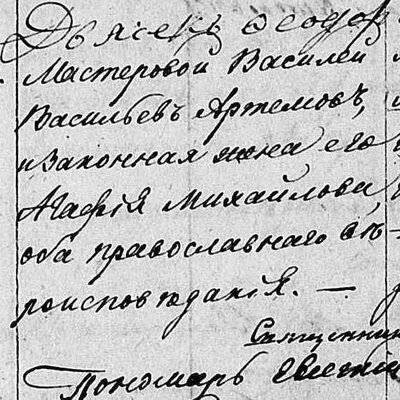 Дьячекъ Ѳеодор
Мастеровой Василей
Васильевъ Артемовъ,
и законная жена его
Агафія Михайлова,
оба православнаго вѣ-
роисповѣданія. —
Священник
Пономарь Евгеній